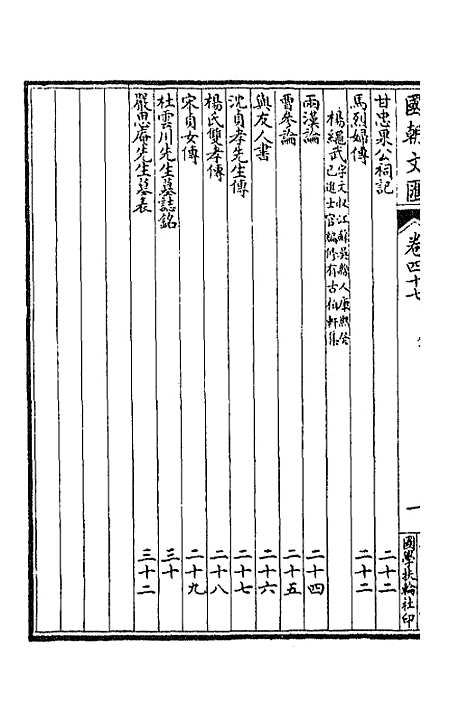 國朝文匯 卷四十七 一 國學扶輪社印
甘忠果公祠記 二十二
馬烈婦傳 二十二
楊繩武 字文叔江蘇吳縣人康熙癸
巳進士官編修有古柏軒集
兩漢論 二十四
曹參論 二十五
與友人書 二十六
沈貞孝先生傳 二十七
楊氏雙孝傳 二十八
宋貞女傳 二十九
杜雲川先生墓誌銘 三十
嚴思庵先生墓表 三十二